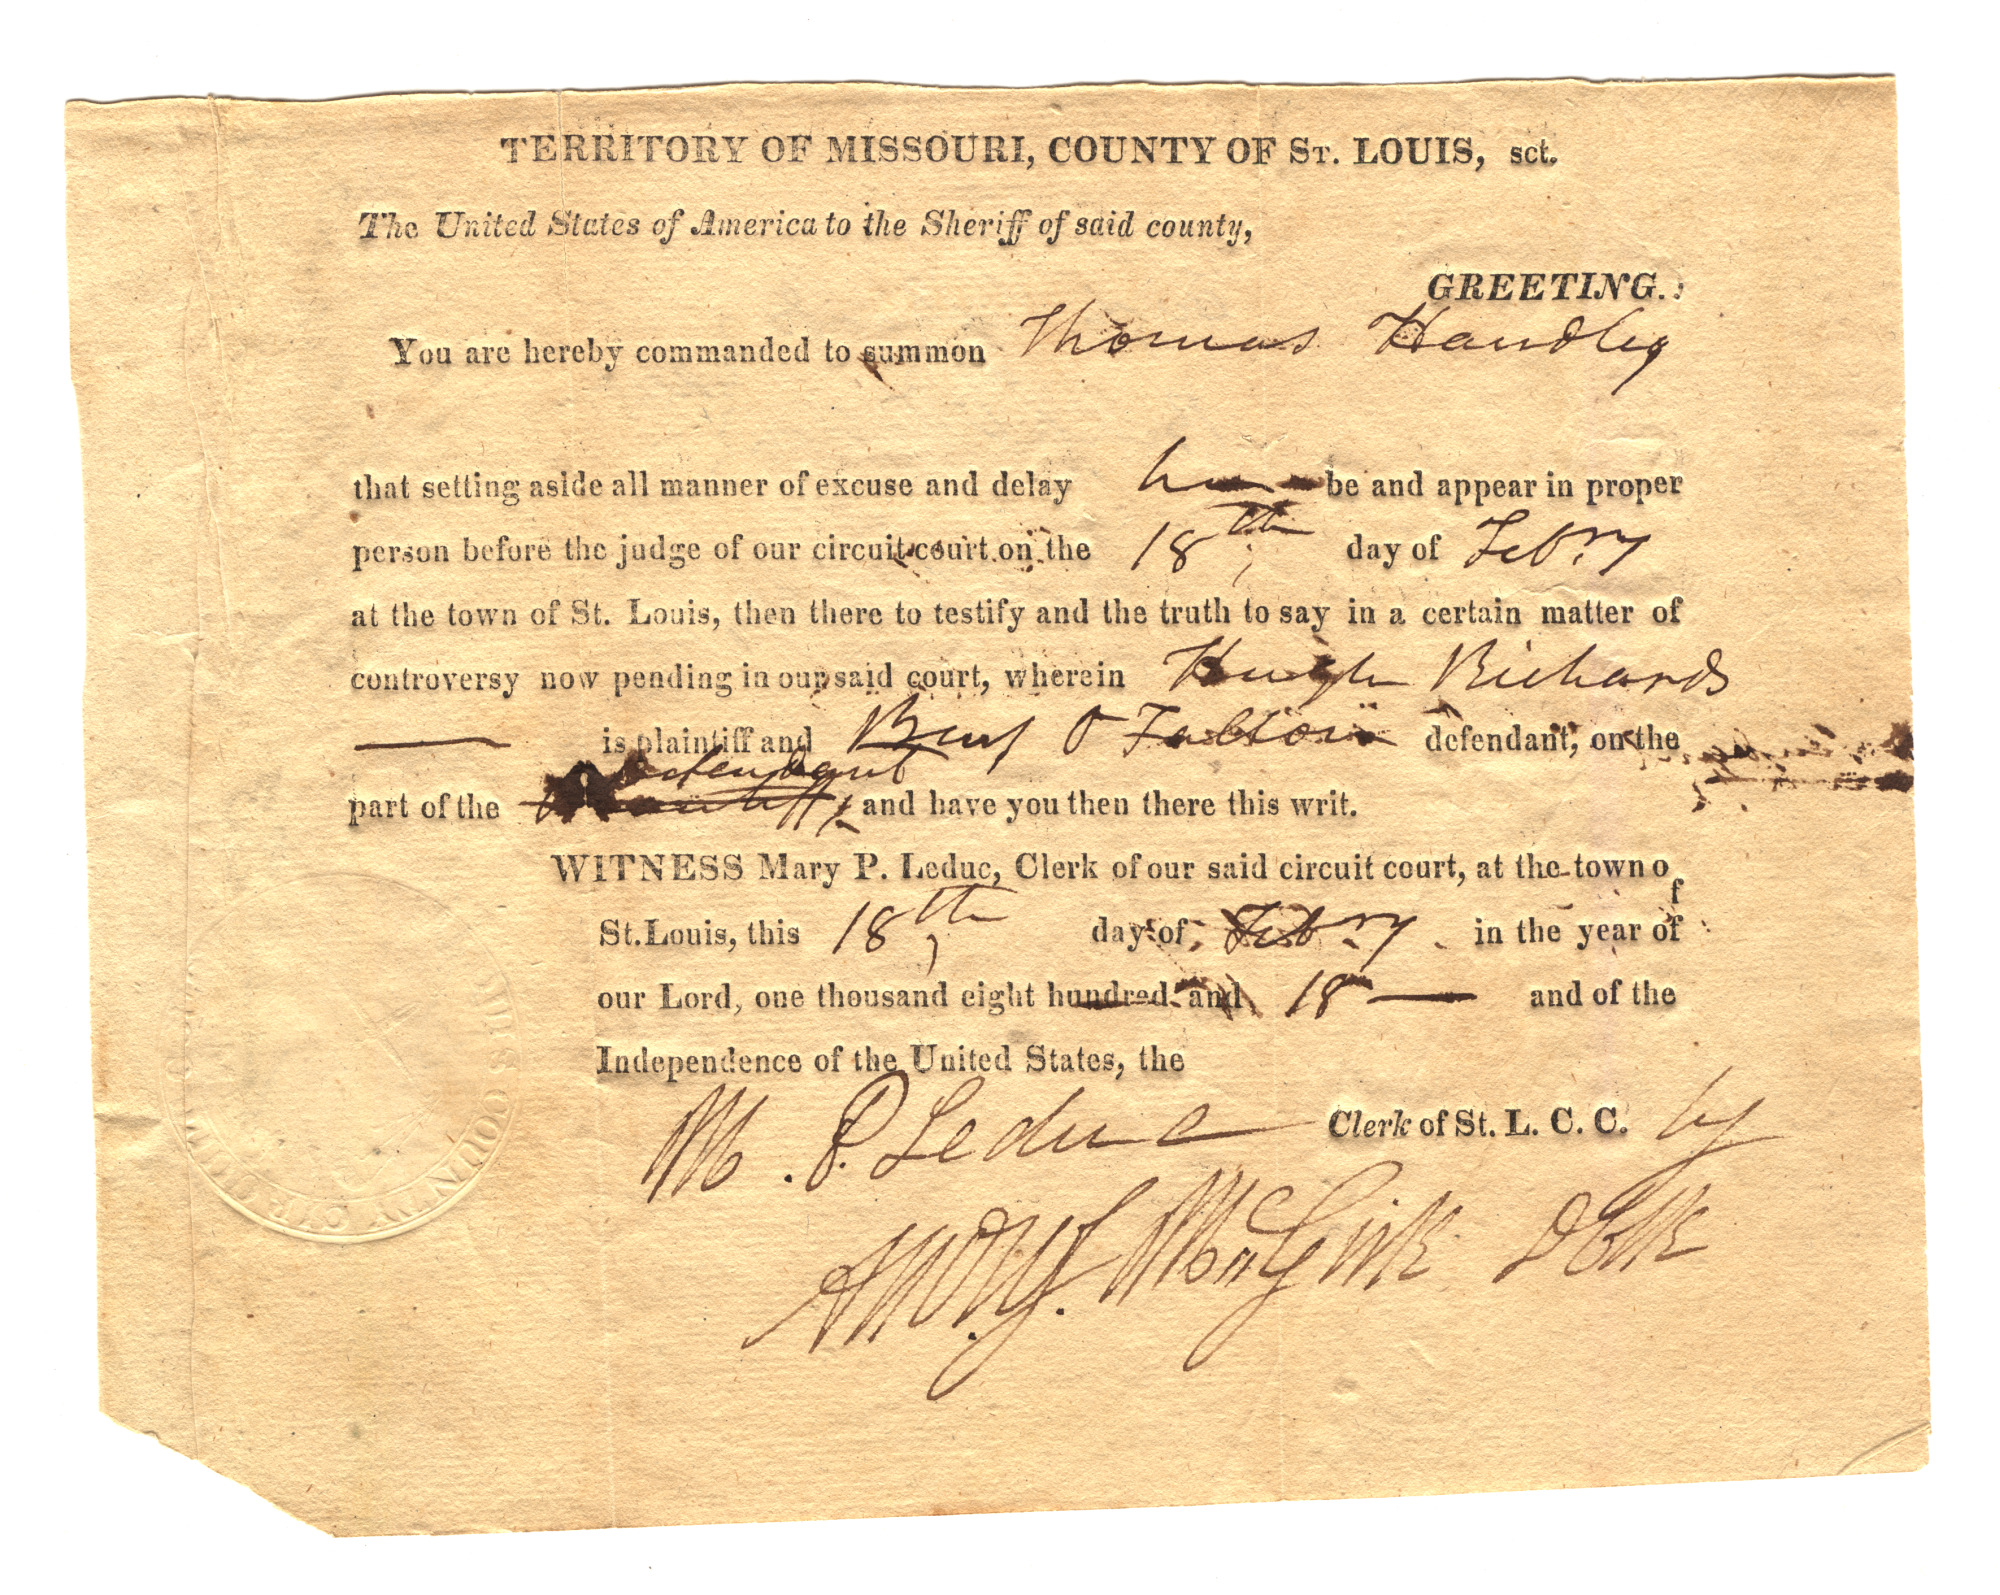 TERRITORY OF MISSOURI, COUNTY OF ST. LOUIS, sct.
The United States of America to the Sheriff of said county,
GREETING.
You are hereby commanded to summon Thomas Handley
that setting aside all manner of excuse and delay he be and appear in proper
person before the judge of our circuit court on the 18th day of Febry
at the town of St. Louis, then there to testify and the truth to say in a certain matter of
controversy now pending in our said court, wherein Hugh Richards
is plaintiff and Benj O Fallon defendant, on the
defendant
part of the plaintiff, and have you then there this writ.
WITNESS Mary P. Leduc, Clerk of our said circuit court, at the town of
St. Louis, this 18th day of Febry in the year of
our Lord, one thousand eight hundred and 18 and of the
Independence of the United States, the
M. P. Leduc Clerk of St. L. C. C. by
McGirk DClk
COUNTY CIRCUIT